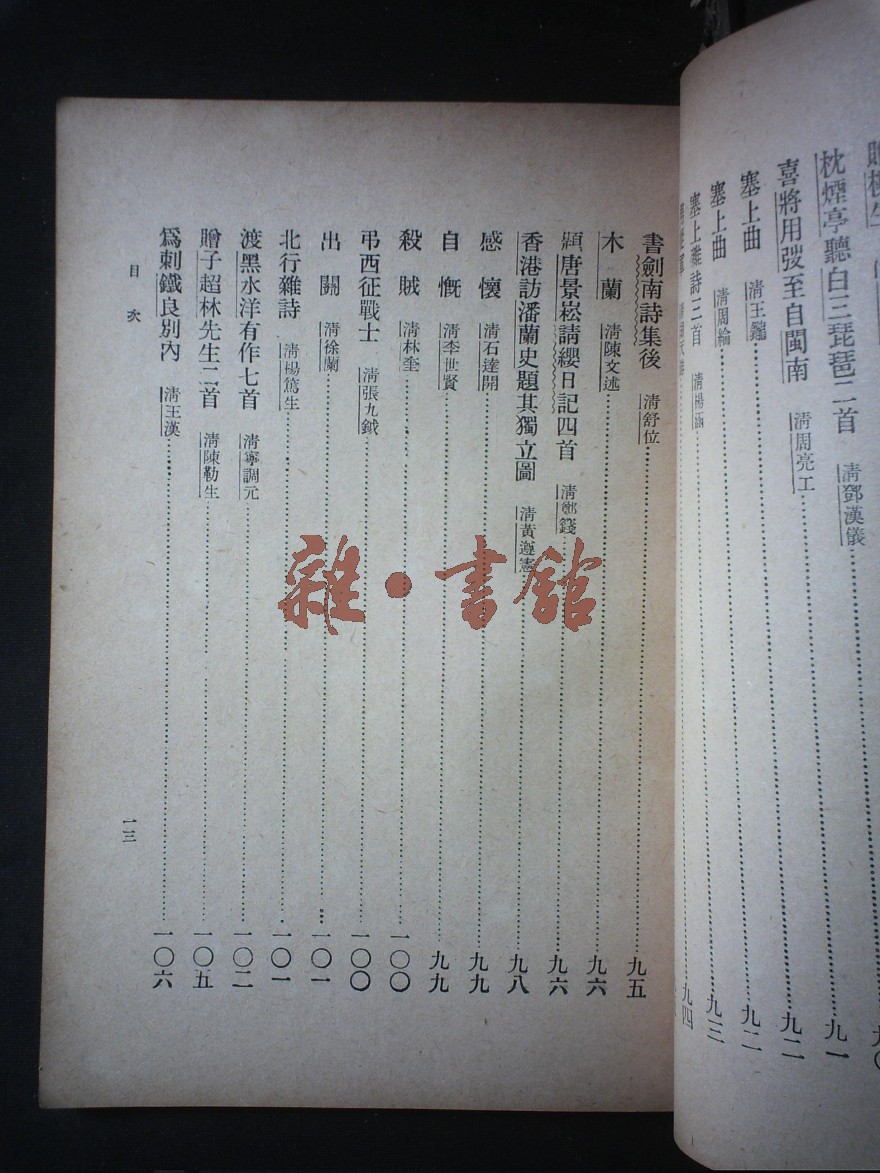 枕煙亭聽白三琵琶二首 清鄧漢儀 九一
喜將用弢至自閩南 清周亮工 九二
塞上曲 清王鑨 九二
塞上曲 清周綸 九三
塞上雜詩三首 清楊涵 九四
書劍南詩集後 清舒位 九五
木蘭 清陳文述 九六
題唐景崧請纓日記四首 清鄭錢 九六
香港訪潘蘭史題其獨立圖 清黃遵憲 九八
感懷 清石達開 九九
自慨 清李世賢 九九
殺賊 清林奎 一〇〇
弔西征戰士 清張九鉞 一〇〇
出關 清徐蘭 一〇一
北行雜詩 清楊篤生 一〇一
渡黑水洋有作七首 清寧調元 一〇二
贈子超林先生二首 清陳勒生 一〇五
爲刺鐵良別內 清王漢 一〇六
目次
一三
雜·書館